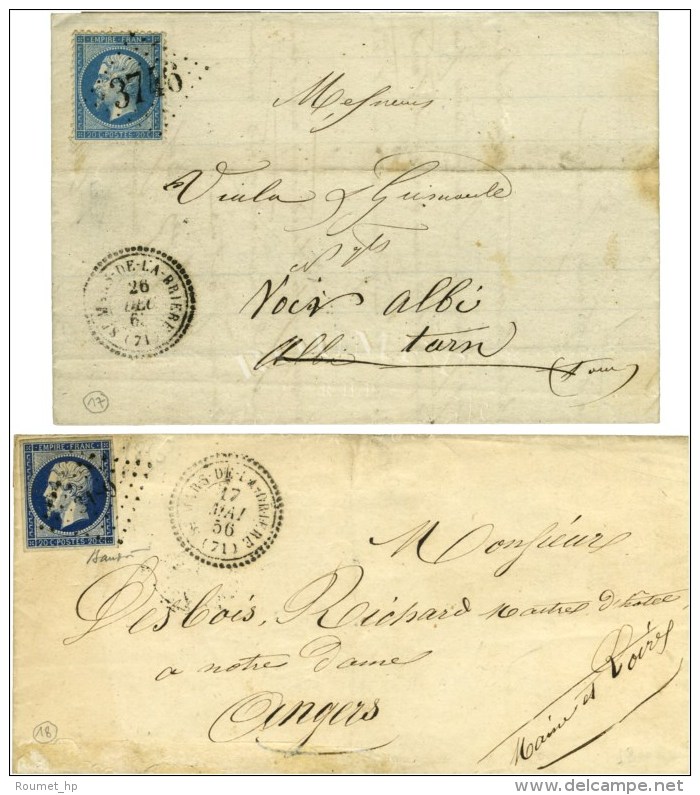 EMPIRE FRANC
3746
20 C POSTES 20 C
Messieurs
Viala & Grimaule
Voir albi
albi tarn
(tarn)
ST MARS-DE-LA-BRIERE
26
DEC
6
(71)
17
EMPIRE FRANC
20 C POSTES 20 C
MARS-DE-LA-BRIERE
17
MAI
56
(71)
Monsieur
Desbois, Richard maitres d'hôtel
a notre Dame
Angers
Maine et Loire
18
Roumet_hp
www.delcampe.net